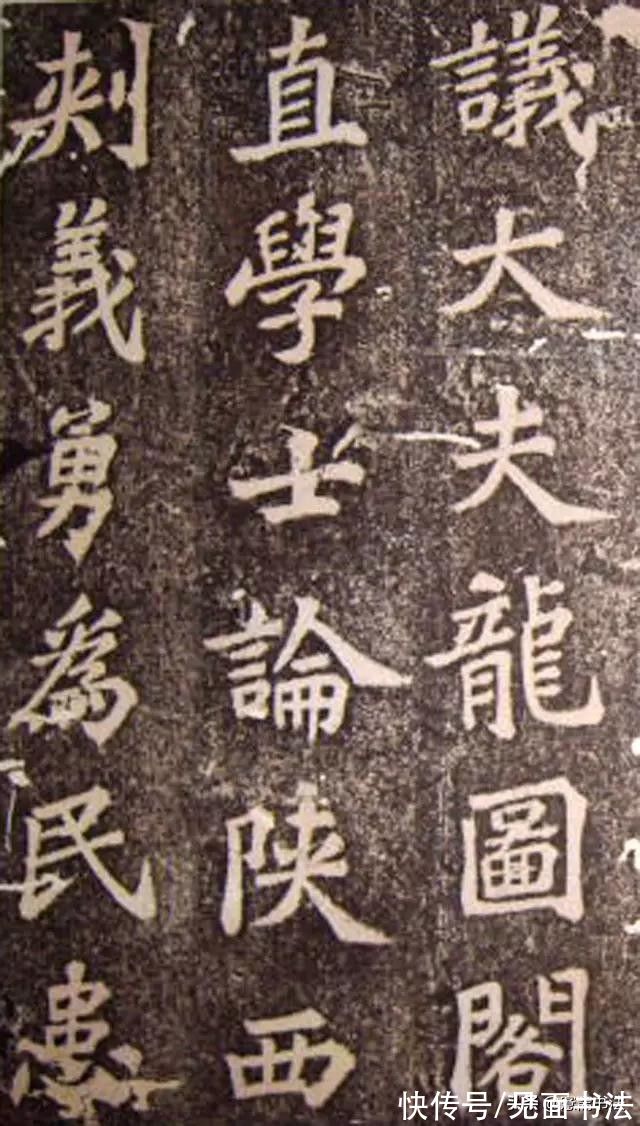 議大夫龍圖閣
直學士論陝西
刺義勇為民患
快传号/见面书法